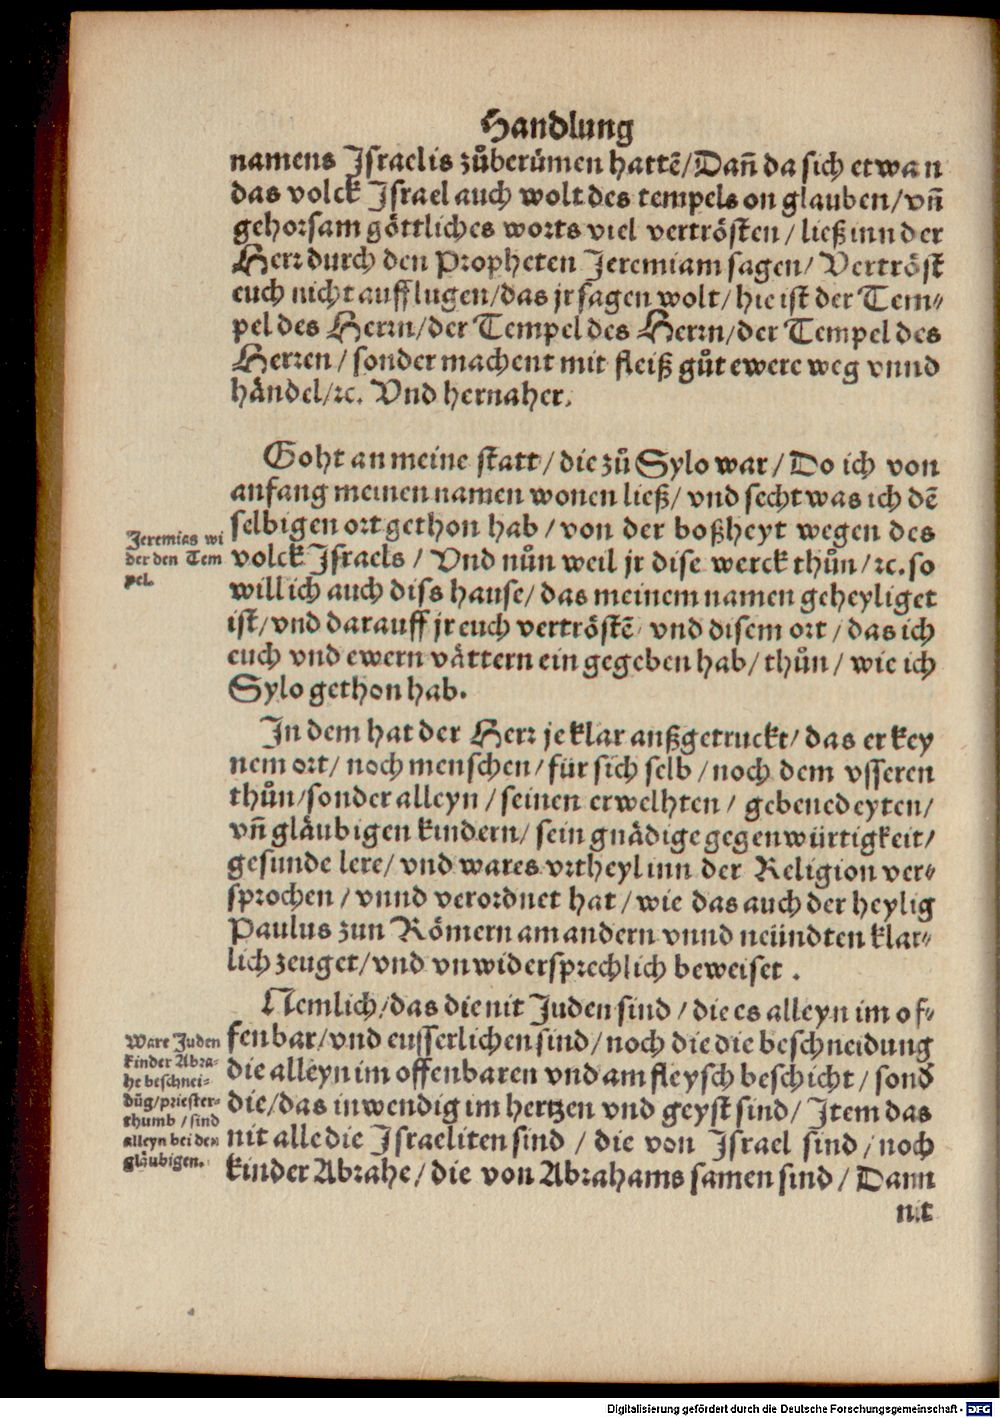 Handlung
namens Jsraelis zůberümen hattẽ/Dañ da sich etwan
das volck Jsrael auch wolt des tempels on glauben/vñ
gehorsam göttliches worts viel vertrösten/ließ inn der
Herr durch den Propheten Jeremiam sagen/Vertröst
euch nicht auff lugen/das jr sagen wolt/hie ist der Tem-
pel des Herrn/der Tempel des Herrn/der Tempel des
Herren/sonder machent mit fleiß gůt ewere weg vnnd
händel/ꝛc. Vnd hernaher.
Goht an meine statt/die zů Sylo war/Do ich von
anfang meinen namen wonen ließ/vnd secht was ich dẽ
selbigen ort gethon hab/von der boßheyt wegen des
Jeremias wi
der den Tem
pel.
volck Jsraels/Vnd nůn weil jr dise werck thůn/ꝛc. so
will ich auch diss hause/das meinem namen geheyliget
ist/vnd darauff jr euch vertröstẽ/vnd disem ort/das ich
euch vnd ewern vättern ein gegeben hab/thůn/wie ich
Sylo gethon hab.
Jn dem hat der Herr je klar außgetruckt/das er key
nem ort/noch menschen/für sich selb/noch dem vsseren
thůn/sonder alleyn/seinen erwelhten/gebenedeyten/
vñ gläubigen kindern/sein gnädige gegenwürtigkeit/
gesunde lere/vnd wares vrtheyl inn der Religion ver-
sprochen/vnnd verordnet hat/wie das auch der heylig
Paulus zun Römern am andern vnnd neündten klar-
lich zeuget/vnd vnwidersprechlich beweiset.
Nemlich/das die nit Juden sind/die es alleyn im of-
fenbar/vnd eusserlichen sind/noch die die beschneidung
Ware Juden
kinder Abra-
he beschnei-
dũg/priester-
thumb/sind
alleyn bei den
gläubigen.
die alleyn im offenbaren vnd am fleysch beschicht/sond
die/das inwendig im hertzen vnd geyst sind/Jtem das
nit alle die Jsraeliten sind/die von Jsrael sind/noch
kinder Abrahe/die von Abrahams samen sind/Dann
nit
Digitalisierung gefördert durch die Deutsche Forschungsgemeinschaft - DFG